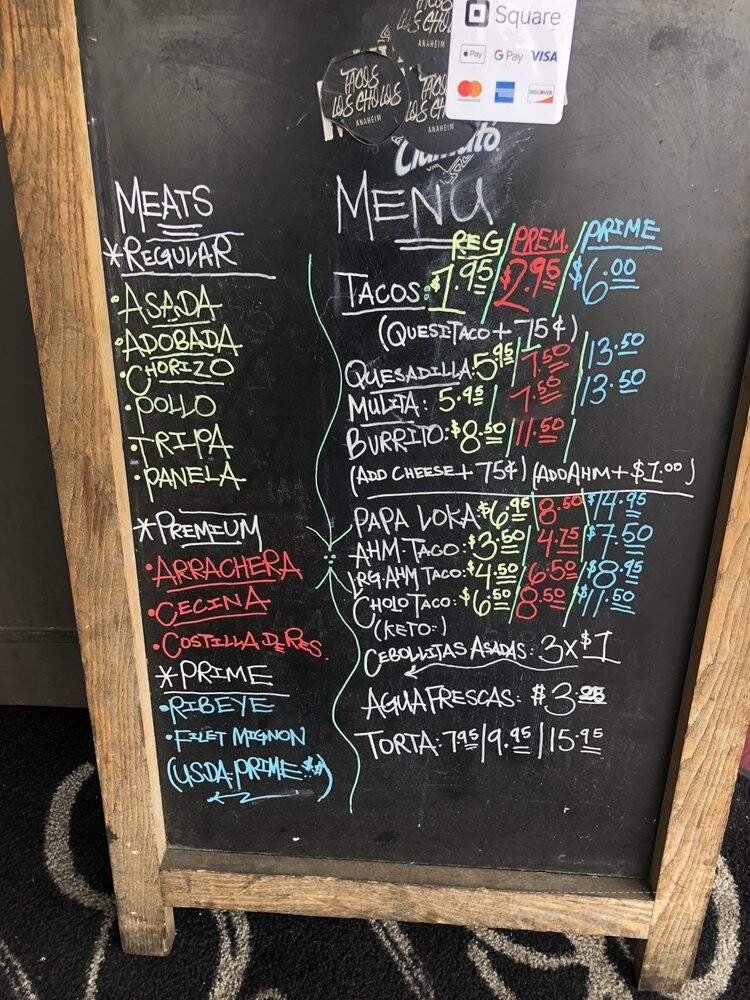 Square
Pay G Pay VISA
DISCOVER
TACOS
LOS CHOLOS
ANAHEIM
LOS CHO
ANAHEIM
ANAHEIM
MEATS
*REGULAR
•ASADA
•ADOBADA
•CHORIZO
•POLLO
•TRIPA
•PANELA
*PREMIUM
•ARRACHERA
•CECINA
•COSTILLA DE RES.
*PRIME
•RIBEYE
•FILET MIGNON
(USDA:PRIME:**)
MENU
REG/PREM./PRIME
TACOS: $1.95/$2.95/$6.00
(QUESITACO + 75¢)
QUESADILLA: 5.95/7.50/13.50
MULITA: 5.95/7.50/13.50
BURRITO: $8.50/11.50/
(ADD CHEESE + 75¢) (ADD AHM + $1.00)
PAPA LOKA: $6.95/8.50/$14.95
AHM-TACO: $3.50/4.75/$7.50
LRG-AHM TACO: $4.50/6.50/$8.95
CHOLO TACO: $6.50/8.50/$11.50
(KETO:)
CEBOLLITAS ASADAS: 3x$1
AGUA FRESCAS: $3.25
TORTA: 7.95/9.95/15.95